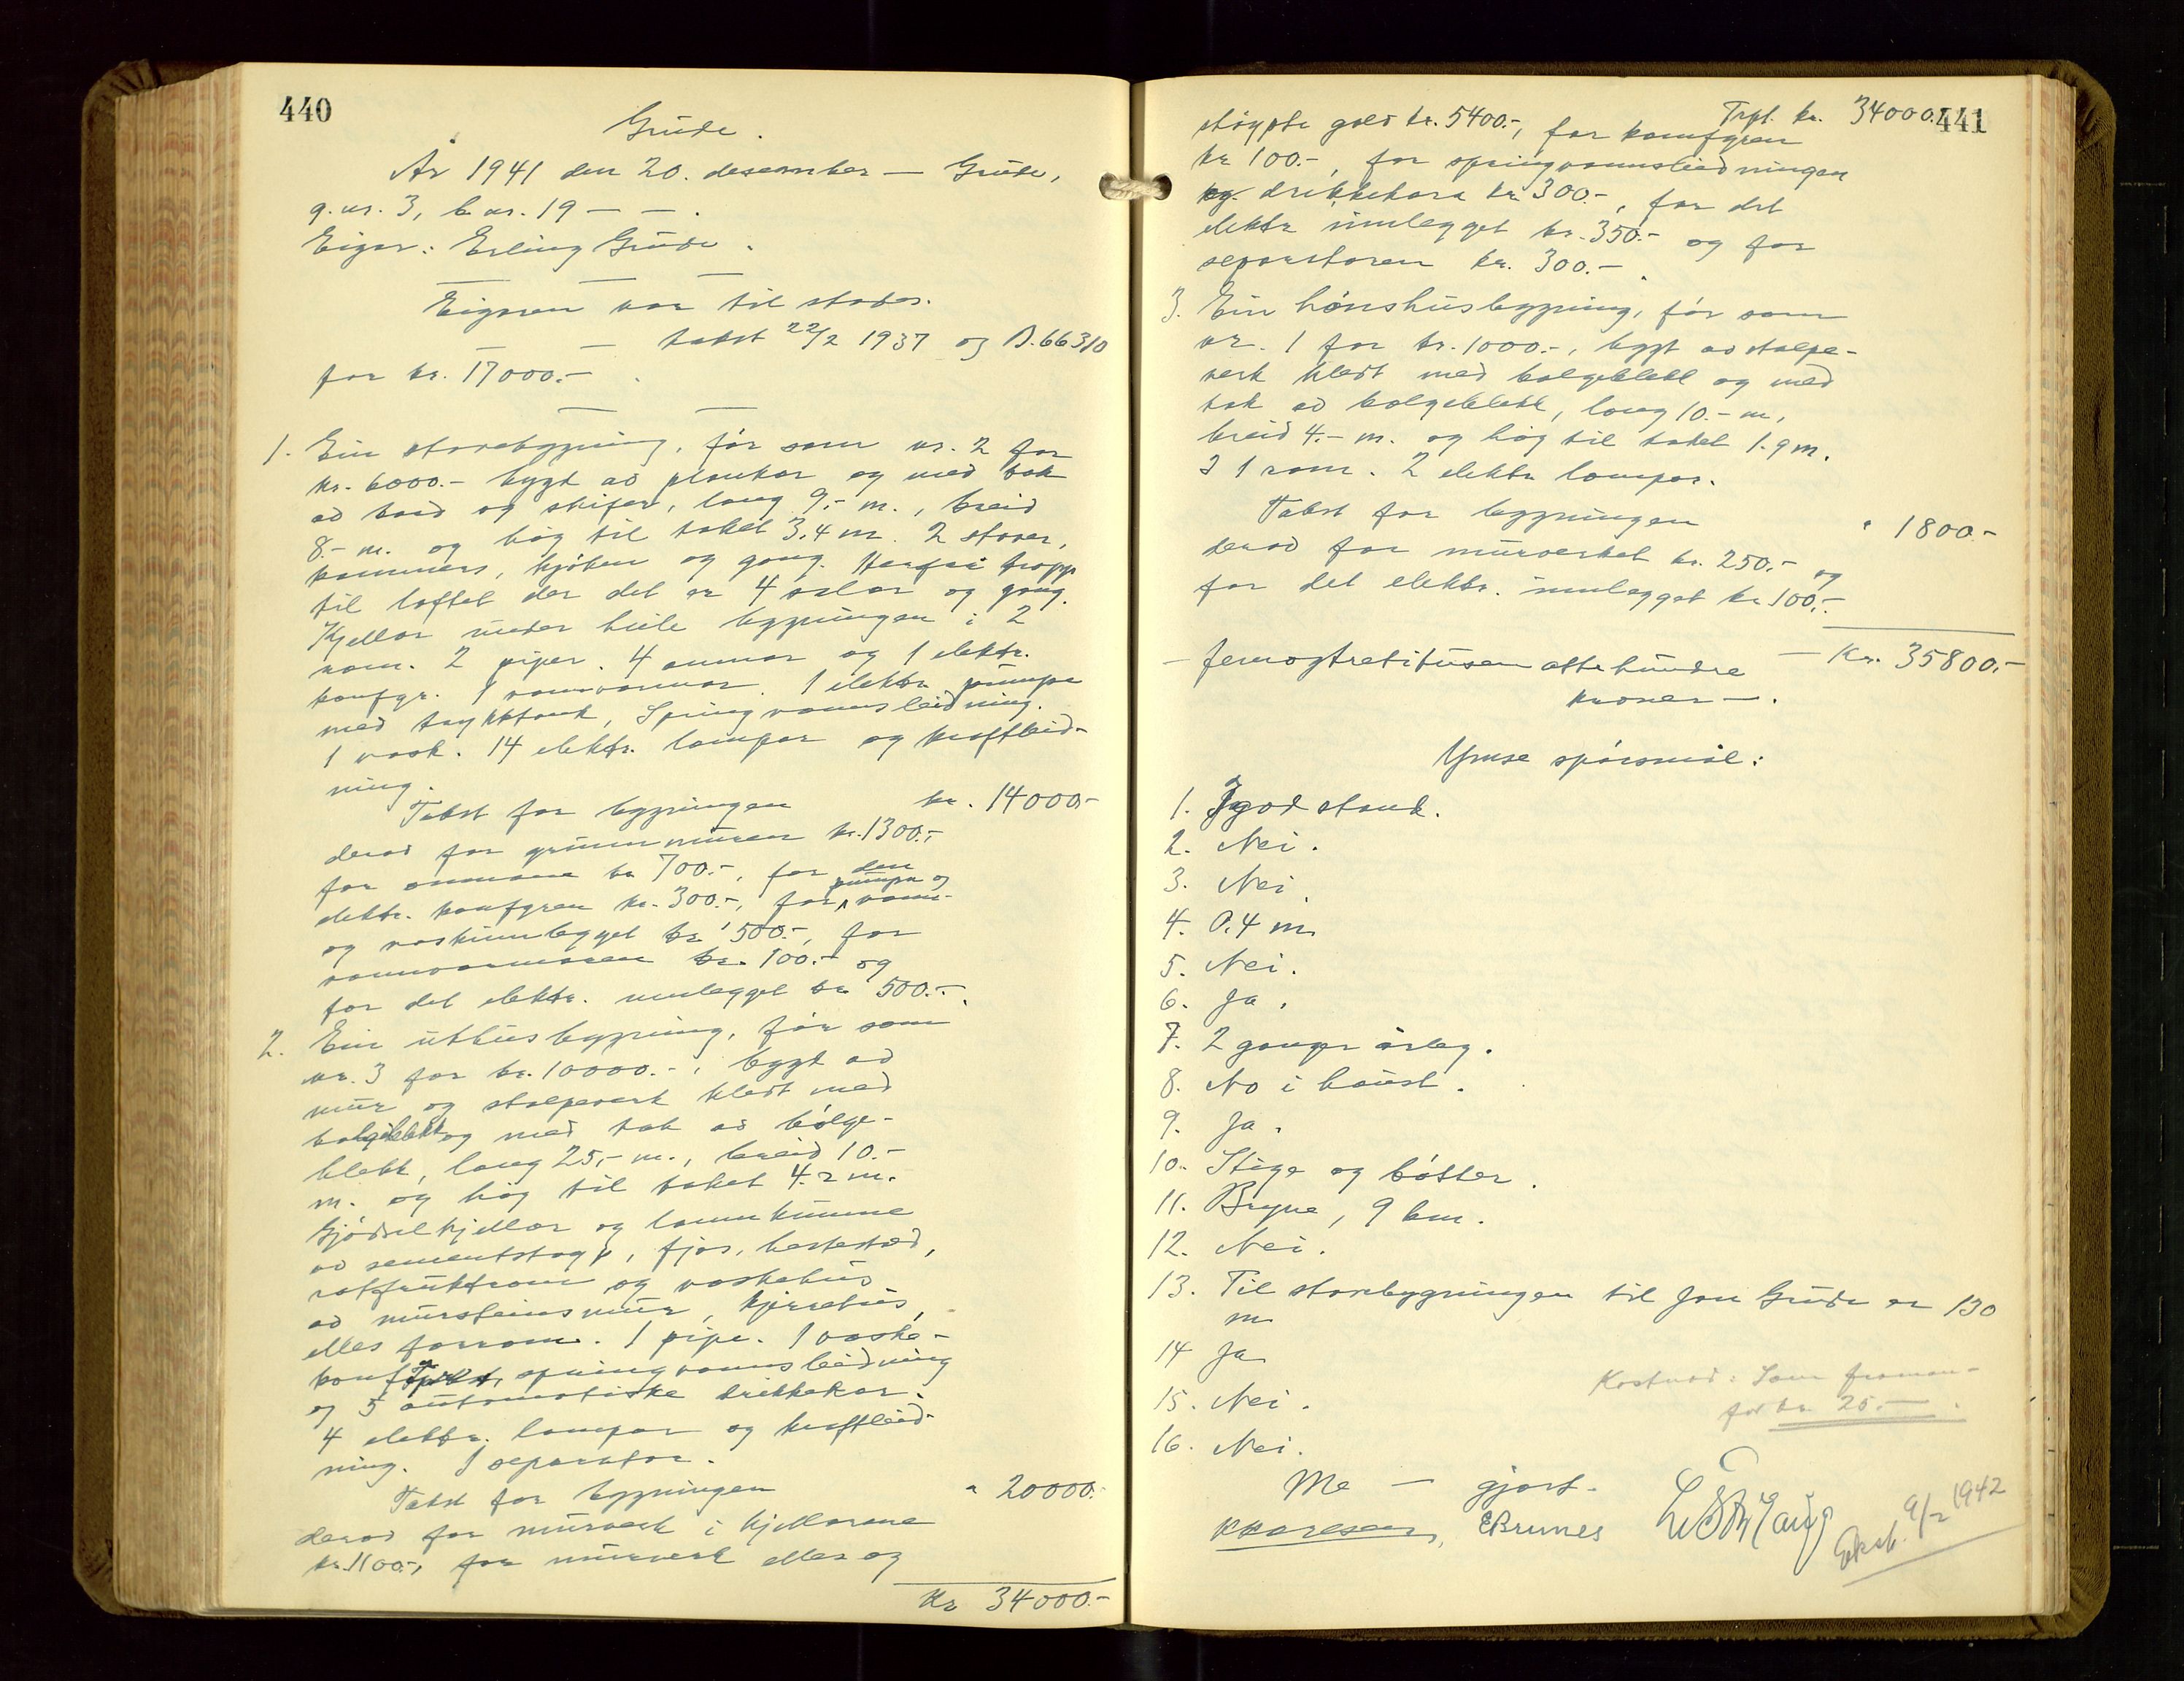 440
Grude.
År 1941 den 20. desember — Grude,
g.nr. 3, b.nr. 19 — — .
Eigar: Erling Grude.
Eigaren var til stades.
— — takst 22/2 1937 og B.66310
for kr. 17000.- .
1. Ein stovebygning, før som nr. 2 for
kr. 6000.- bygt av plankar og med tak
av bord og skifer, lang 9,- m., breid
8.- m. og høg til taket 3,4 m. 2 stover,
kammers, kjøken og gang. Herfrå tropp
til loftet der det er 4 salar og gang.
Kjellar under heile bygningen i 2
rom. 2 piper. 4 omnar og 1 elektr.
komfyr. 1 vannvarmar. 1 elektr. pumpe
med trykktank, Springvannsleidning.
1 vask. 14 elektr. lampar og kraftleid-
ning.
Takst for bygningen kr. 14000.-
derav for grunnmuren kr. 1300.-,
for omnane kr 700.-, for den
elektr. komfyren kr. 300.-, for pumpa og vann-
og vaskinnlegget kr 500.-, for
vannvarmaren kr. 100.- og
for det elektr. innlegget kr 500.-.
2. Ein uthusbygning, før som
nr. 3 for kr. 10000.-, bygt av
mur og stolpeverk kledt med
bølgeblekk og med tak av bølge-
blekk, lang 25,- m., breid 10.-
m. og høg til taket 4.2 m.
Gjødselkjellar og lannkumme
av sementstøyp, fjøs, hestestad,
rotfruktrom og vaskehus
av mursteinsmur, kjerrehus,
elles forrom. 1 pipe. 1 vaske-
komfyr, springvannsleidning
og 5 automatiske drikkekar.
4 elektr. lampar og kraftleid-
ning. 1 separator.
Takst for bygningen " 20000.-
derav for murverk i kjellarane
kr. 1100.-, for murverk elles og
Kr 34000.-
441
Trpt. kr. 34000.-
støypte golv kr. 5400.-, for komfyren
kr 100.-, for springvannsleidningen
og drikkekara kr 300.-, for det
elektr innlegget kr. 350.- og for
separatoren kr. 300.- .
3. Ein hønshusbygning, før som
nr. 1 for kr. 1000.-, bygt av stolpe-
verk kledt med bølgeblekk og med
tak av bølgeblekk, lang 10.- m,
breid 4.- m. og høg til taket 1.9 m.
I 1 rom. 2 elektr. lampar.
Takst for bygningen " 1800.-
derav for murverket kr. 250.- og
for det elektr. innlegget kr 100.-.
— femogtretitusen åttehundre — Kr. 35800.-
kroner — .
Ymse spørsmål:
1. I god stand.
2. Nei.
3. Nei
4. 0.4 m
5. Nei.
6. Ja.
7. 2 ganger årleg.
8. No i haust.
9. Ja.
10. Stige og bøtter.
11. Bryne, 9 km.
12. Nei.
13. Til stovebygningen til Jon Grude er 130
m
14 Ja
15. Nei.
16. Nei.
Kostnad: Som framan-
for kr. 25.- .
Me — gjort.
EBrunes
Eksp. 9/2 1942